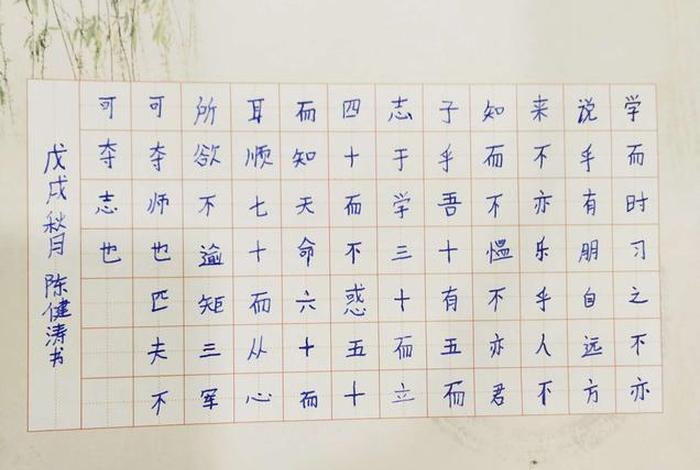 学而时习之不亦
说乎有朋自远方
来不亦乐乎人不
知而不愠不亦君
子乎吾十有五而
志于学三十而立
四十而不惑五十
而知天命六十而
耳顺七十而从心
所欲不逾矩三军
可夺师也匹夫不
可夺志也
戊戌秋月陈健涛书